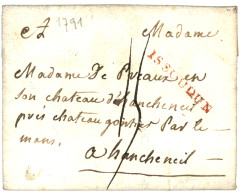 1791
Madame
ISSOUDUN
Madame De Preaux en
son chateau d'hancheneil
pres chateau gontier Par le
mans,
a hancheneil